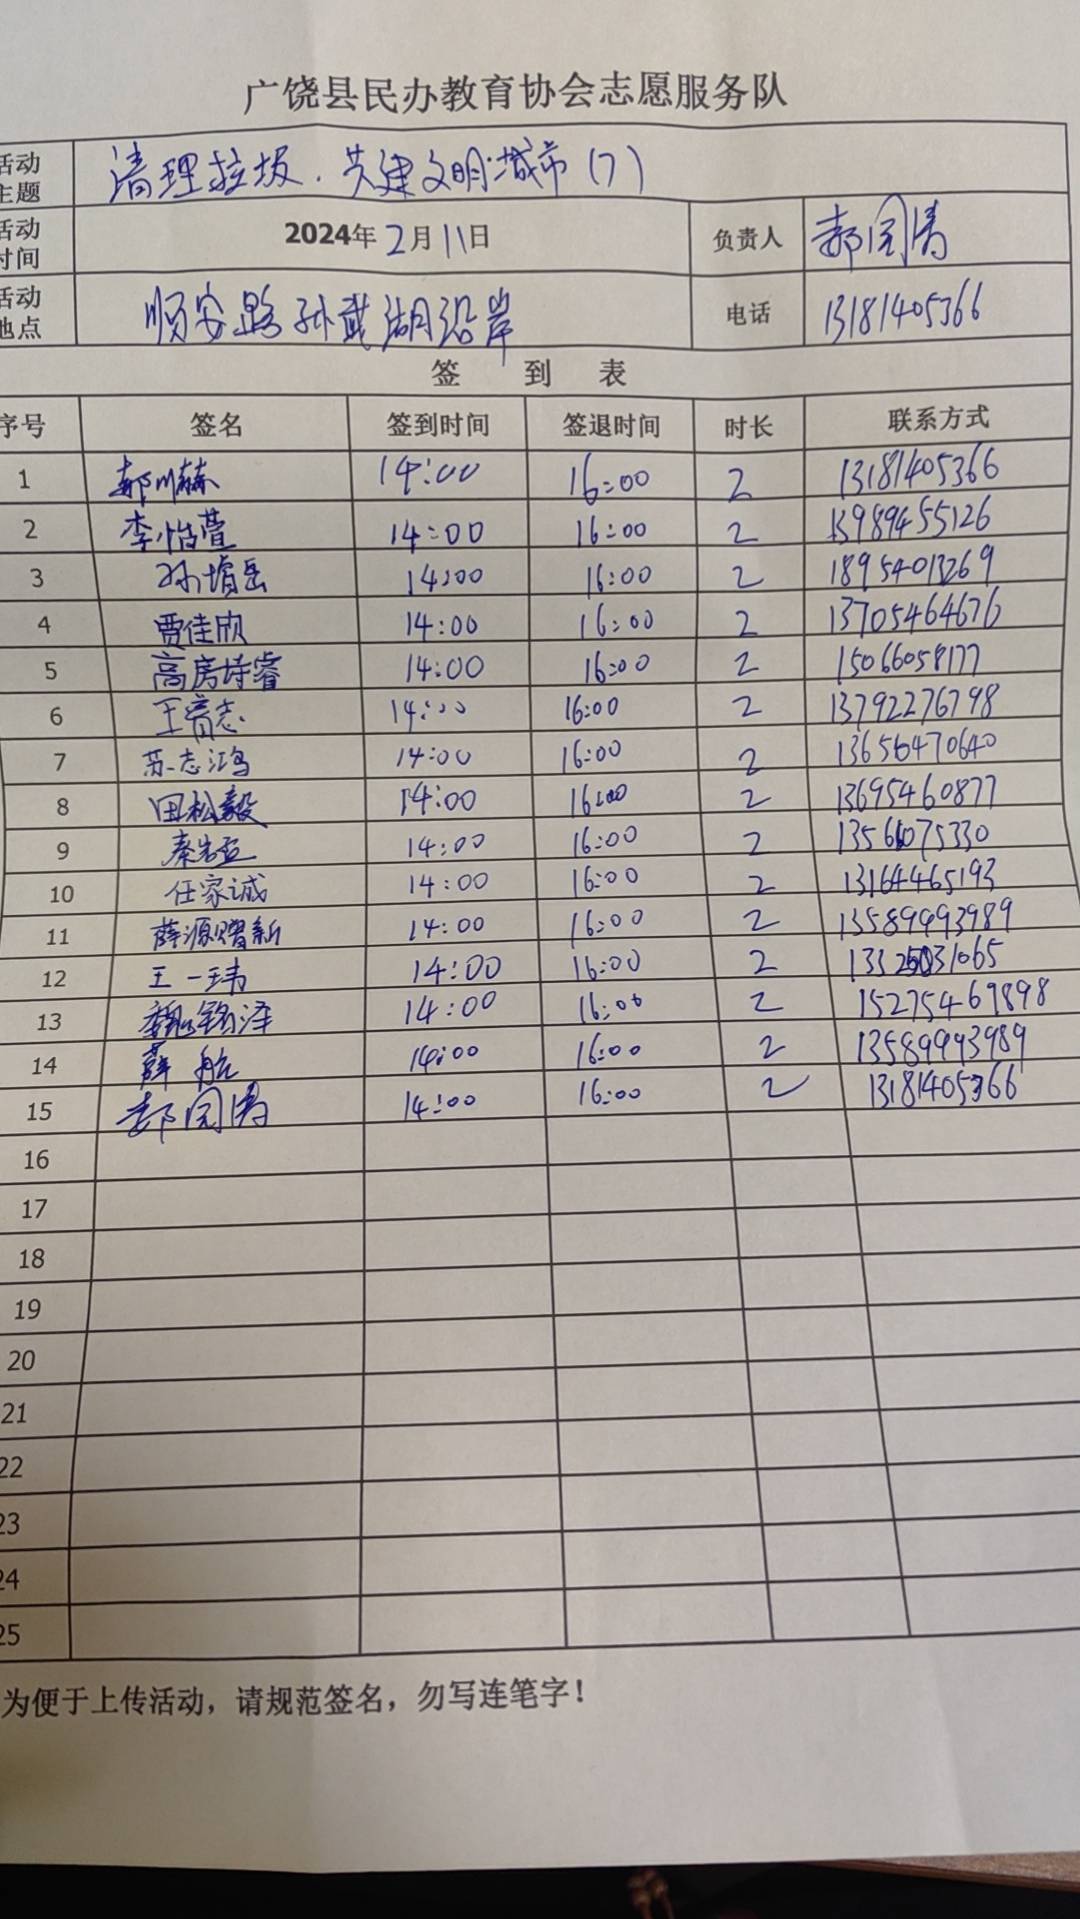 广饶县民办教育协会志愿服务队
活动主题 清理垃圾.共建文明城市(7)
活动时间 2024年2月11日 负责人 郝国涛
活动地点 顺安路孙武湖沿岸 电话 13181405366
签 到 表
序号 签名 签到时间 签退时间 时长 联系方式
1 14:00 16:00 2 13181405366
2 李怡萱 14:00 16:00 2 13989455126
3 孙堉岳 14:00 16:00 2 18954013269
4 贾佳欣 14:00 16:00 2 13705464676
5 高房诗睿 14:00 16:00 2 15066058177
6 14:00 16:00 2 13792276798
7 苏志鸿 14:00 16:00 2 13656470640
8 田松毅 14:00 16:00 2 13695460877
9 14:00 16:00 2
10 任家诚 14:00 16:00 2 13164465193
11 薛源熠新 14:00 16:00 2 13589993989
12 王一玮 14:00 16:00 2
13 14:00 16:00 2 15275469898
14 薛航 14:00 16:00 2 13589993989
15 郝国涛 14:00 16:00 2 13181405366
16
17
18
19
20
21
22
23
24
25
为便于上传活动，请规范签名，勿写连笔字！